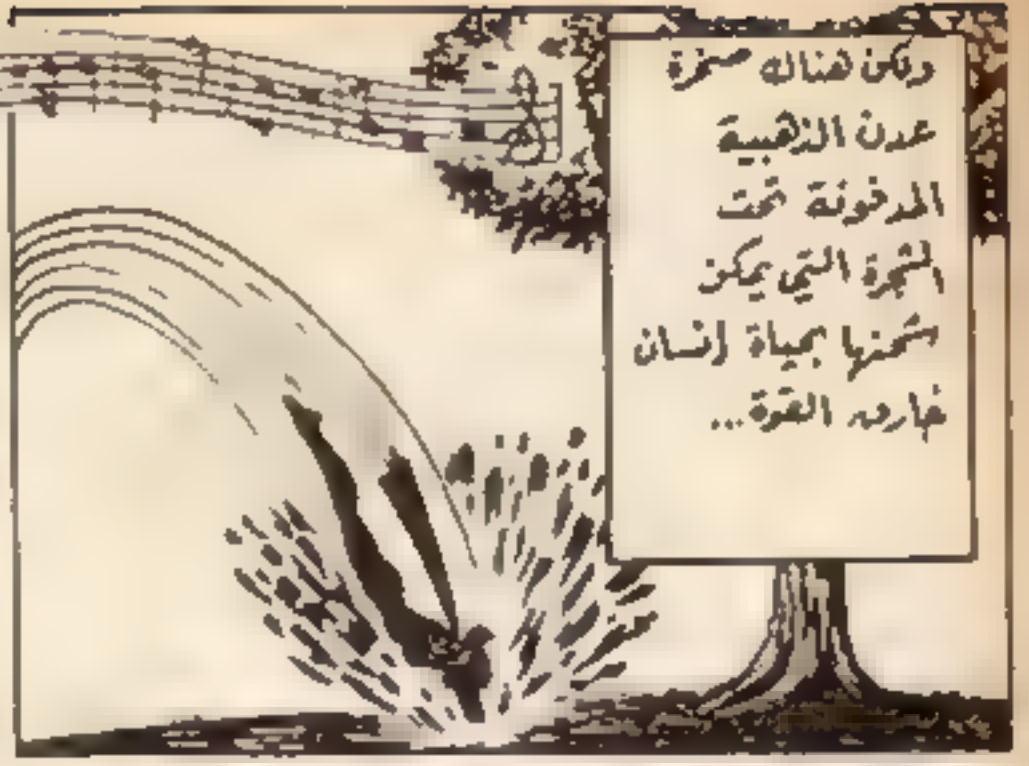 ولكن هناك صخرة
عدن الذهبية
المدفونة تحت
الشجرة التي يمكن
شحنها بحياة إنسان
خارق القوة...